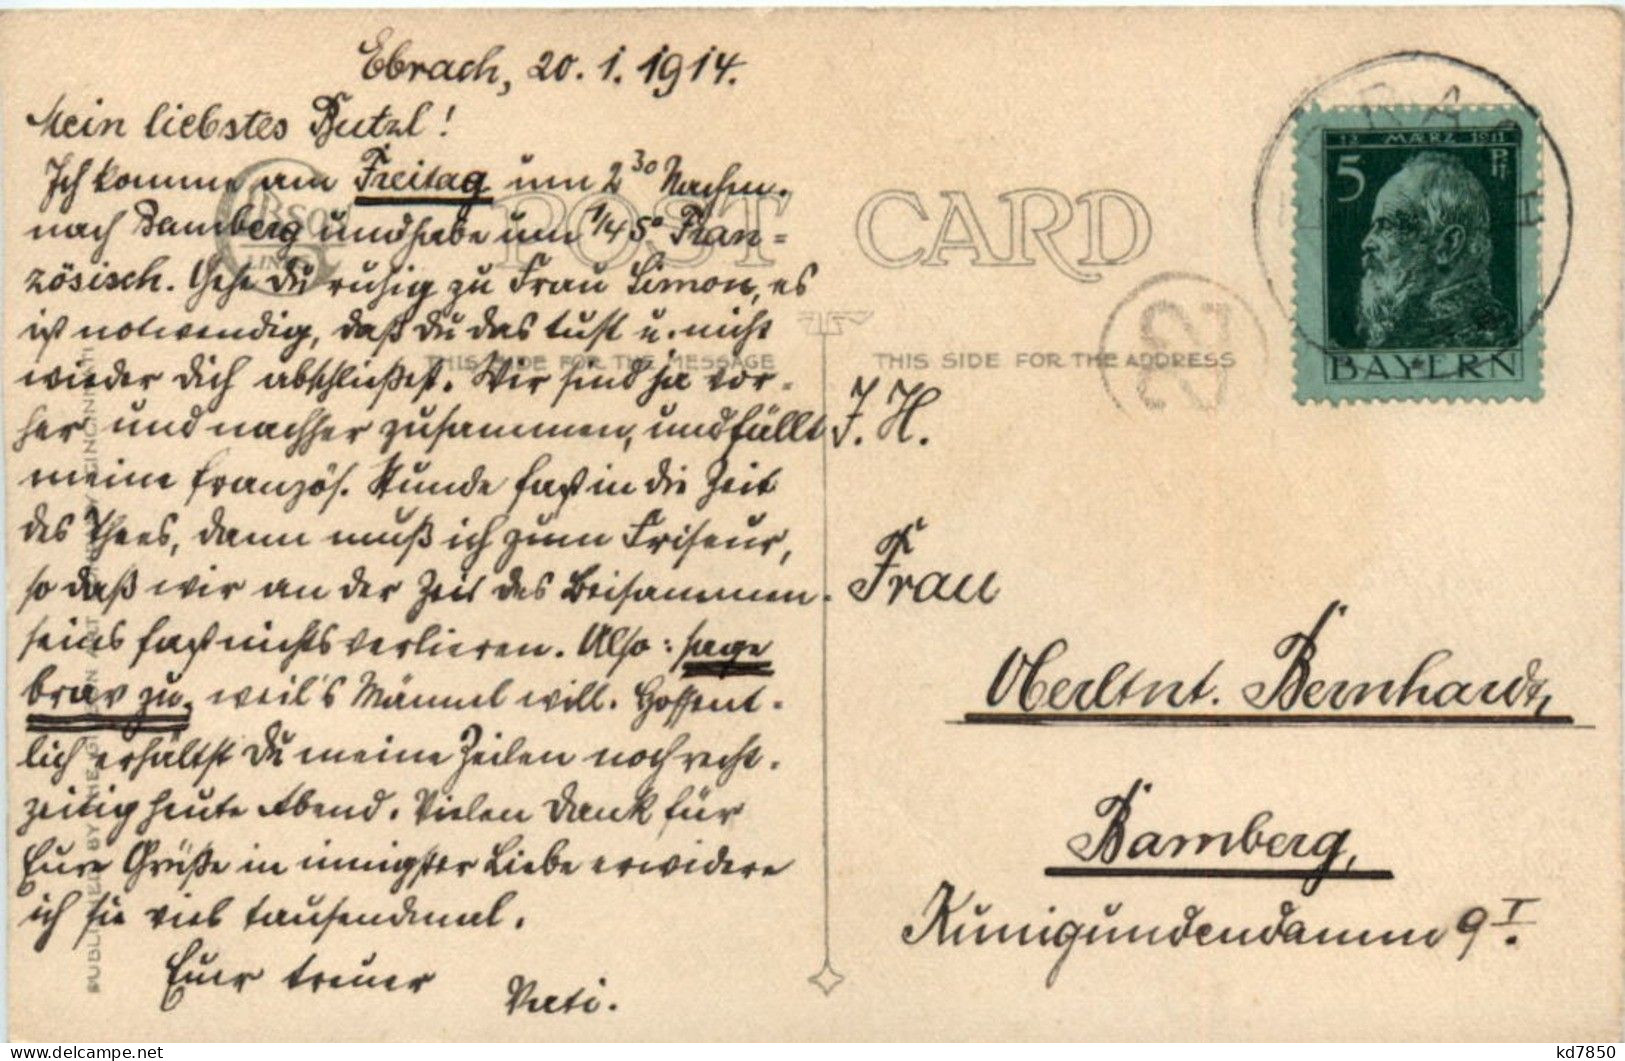 Ebrach, 20. 1. 1914.
Mein liebstes Butzl!
Ich komme am Freitag um 2 30 Nachm.
nach Bamberg und habe um 1/4 5° Fran=
zösisch. Gehe Du ruhig zu Frau Simon, es
ist notwendig, daß Du das tust u. nicht
wieder Dich abschließest. Wir sind ja vor-
her und nachher zusammen, und fällt
meine französ. Stunde fast in die Zeit
des Thees, dann muß ich zum Friseur,
so daß wir an der Zeit des Beisammen-
seins fast nichts verlieren. Also: sage
brav zu, weil's Männel will. Hoffent-
lich erhältst Du meine Zeilen noch recht-
zeitig heute Abend. Vielen Dank für
Eure Grüße in innigster Liebe erwidere
ich sie viel tausendmal.
Euer treuer
Vati.
POST CARD
THIS SIDE FOR THE MESSAGE
THIS SIDE FOR THE ADDRESS
12 MÄRZ 1911
5 Pf
BAYERN
I. H.
Frau
Oberltnt. Bernhardt,
Bamberg,
Kunigundendamm 9 I.
kd7850